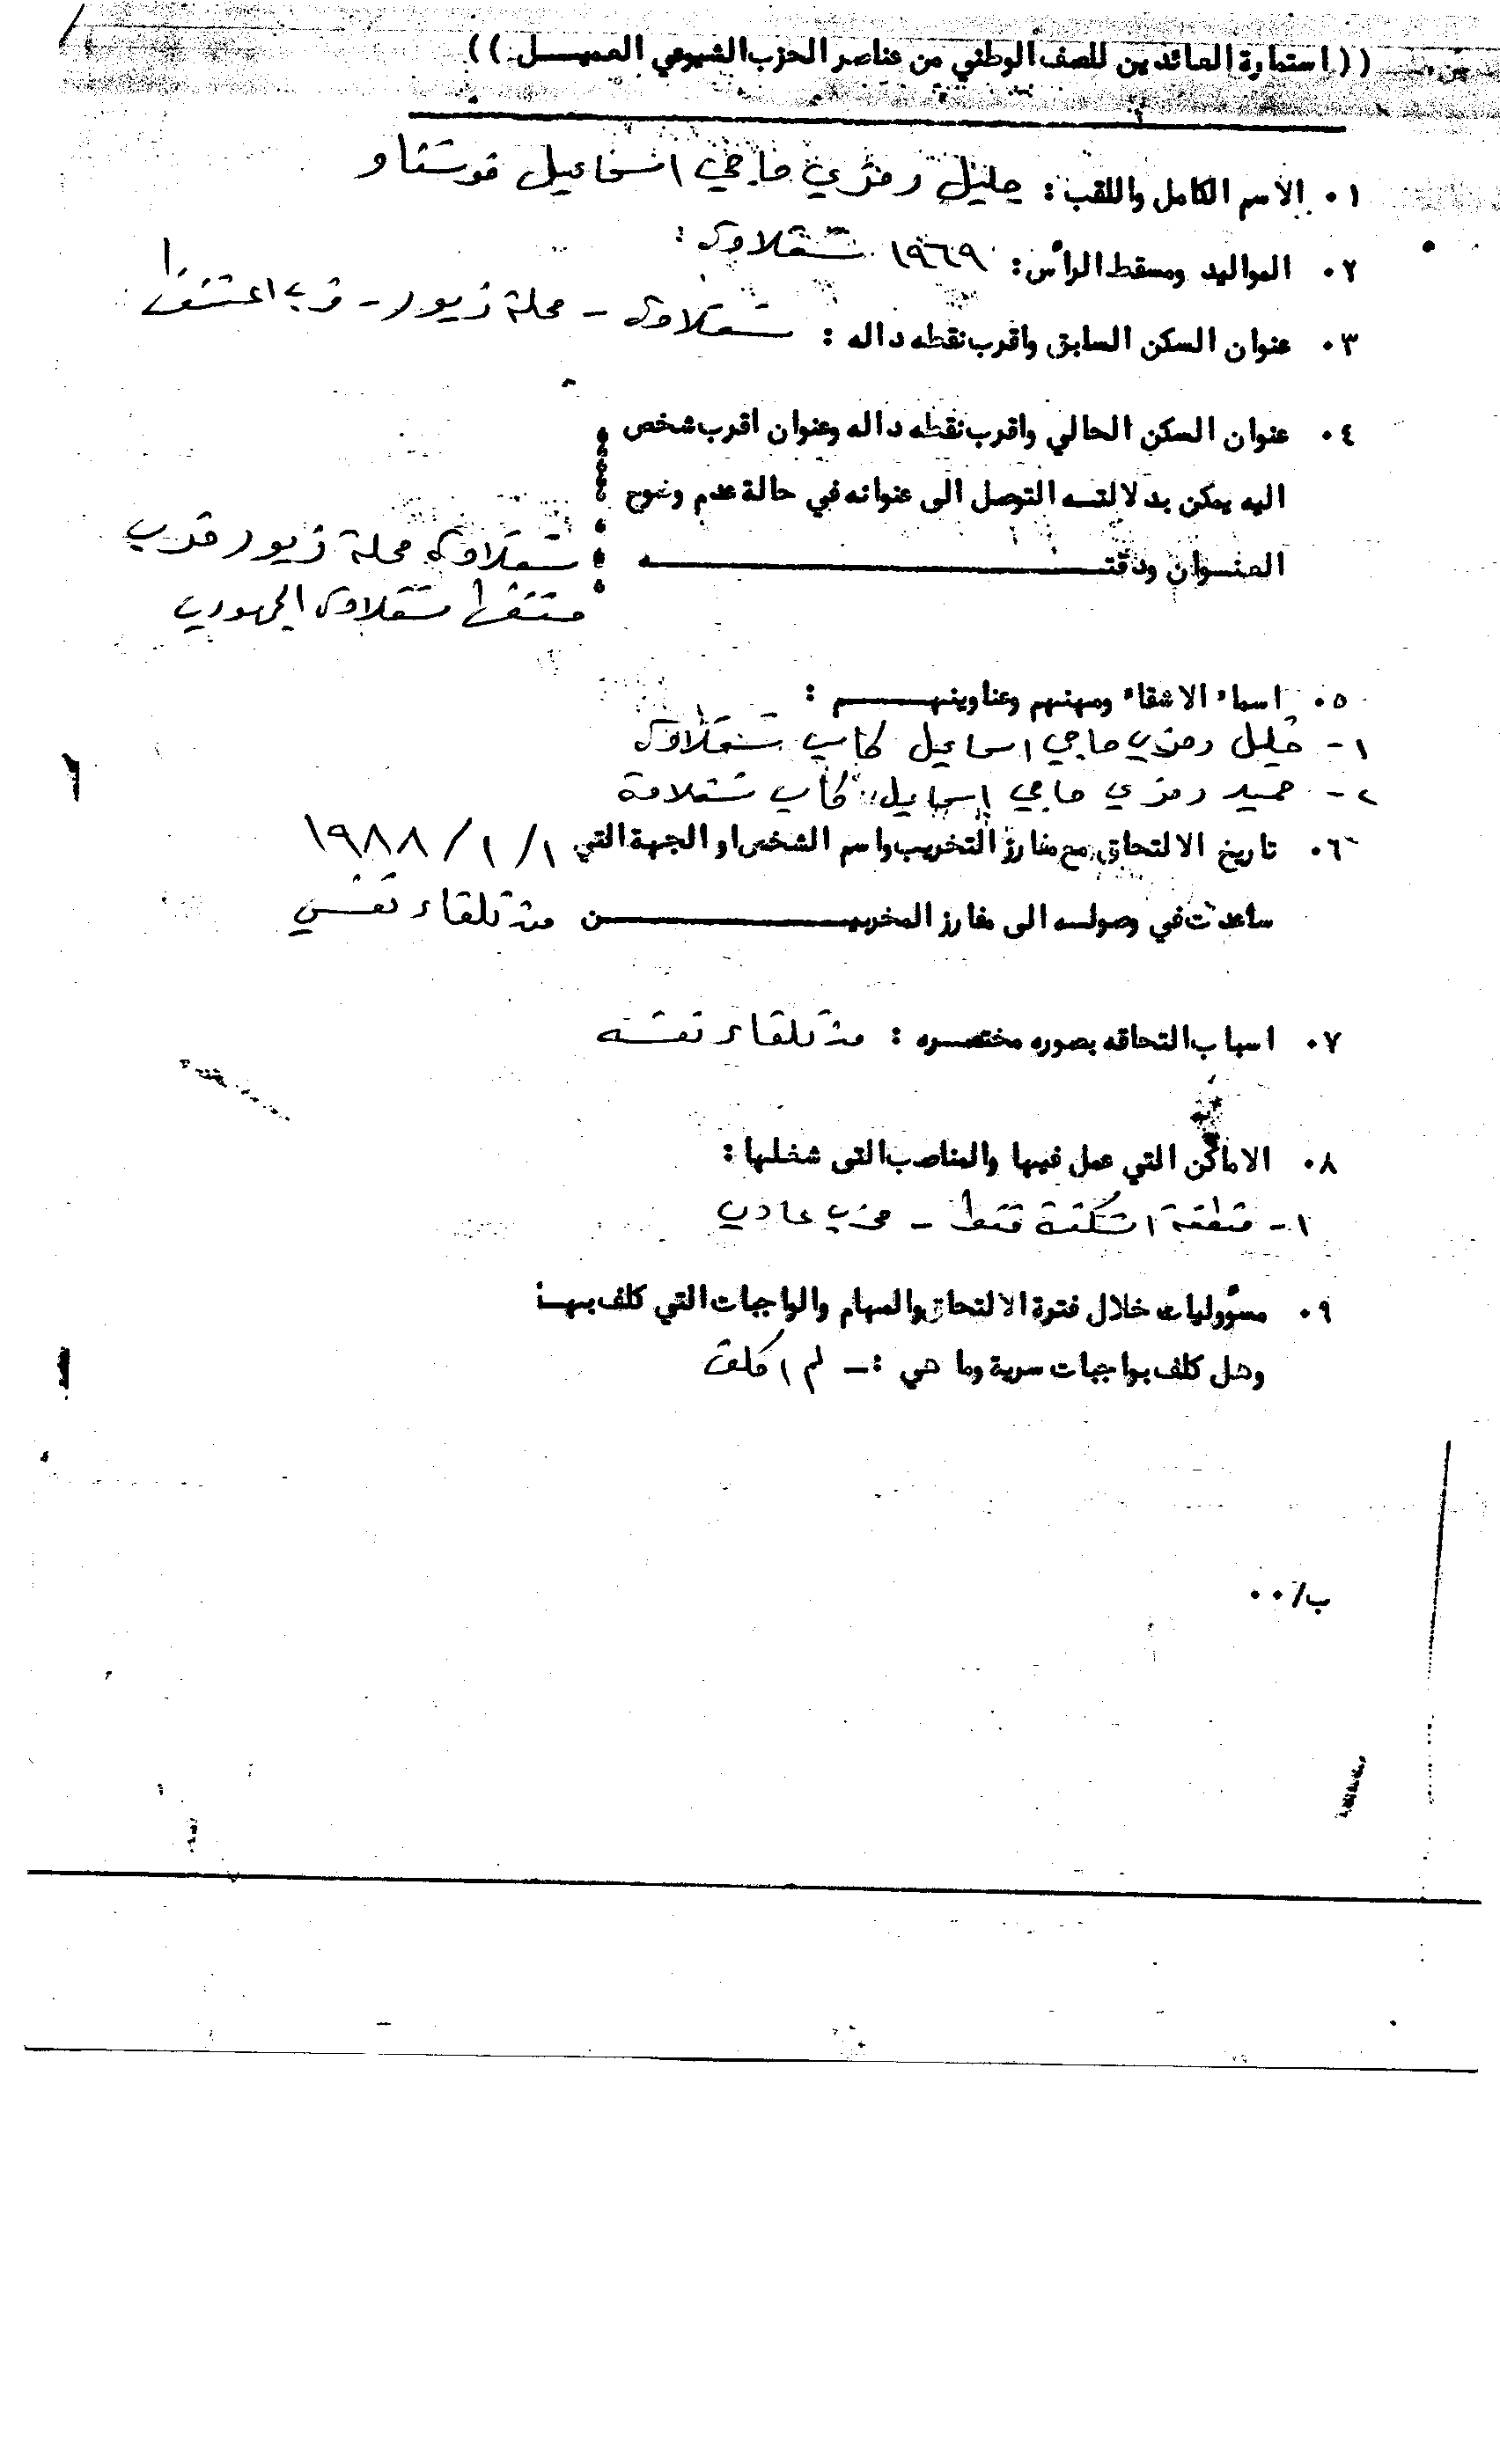 ((استمارة العائدين للصف الوطني من عناصر الحزب الشيوعي العميـــل))
٠١ الاسم الكامل واللقب : جليل رمزي حاجي اسماعيل
٠٢ المواليد ومسقط الرأس : ١٩٦٩ شقلاوه
٠٣ عنوان السكن السابق واقرب نقطه داله : شقلاوه - محلة زيور - قرب
٠٤ عنوان السكن الحالي واقرب نقطه داله وعنوان اقرب شخص
اليه يمكن بدلالتـه التوصل الى عنوانه في حالة عدم وضوح
العنـوان ودقتــــــه شقلاوه محلة زيور قرب
شقلاوه الجمهوري
٠٥ اسماء الاشقاء ومهنهم وعناوينهـــم :
١- خليل رمزي حاجي اسماعيل كاسب شقلاوه
٢- حميد رمزي حاجي إسماعيل كاسب شقلاوة
٠٦ تاريخ الالتحاق مع مفارز التخريب واسم الشخص او الجهة التي ١/١/١٩٨٨
ساعدت في وصولـه الى مفارز المخربيـــــن من تلقاء نفسي
٠٧ اسباب التحاقه بصوره مختصـره : من تلقاء نفسه
٠٨ الاماكن التي عمل فيها والمناصب التي شغلها :
١- منطقة فقط - مخرب عادي
٠٩ مسؤوليات خلال فترة الالتحاق والمهام والواجبات التي كلف بهـا
وهل كلف بواجبات سرية وما هي :ـ لم اكلف
ب/٠٠